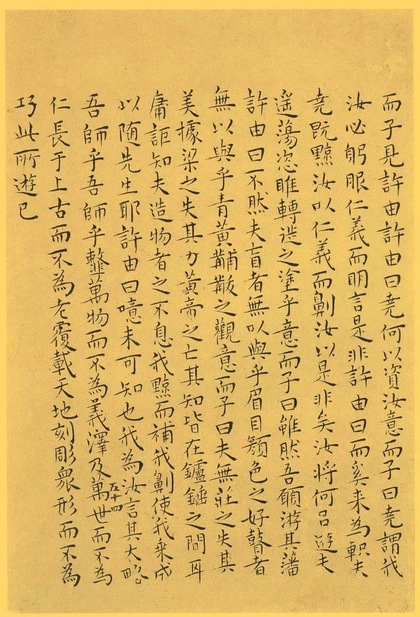 而子見許由許由曰堯何以資汝意而子曰堯謂我
汝必躬服仁義而明言是非許由曰而奚来為軹夫
堯既黥汝以仁義而劓汝以是非矣汝將何以遊夫
遥蕩恣睢轉徙之塗乎意而子曰雖然吾願游其藩
許由曰不然夫盲者無以與乎眉目顏色之好瞽者
無以與乎青黃黼黻之觀意而子曰夫無莊之失其
美據梁之失其力黃帝之亡其知皆在鑪錘之間耳
庸詎知夫造物者之不息我黥而補我劓使我乘成
以随先生耶許由曰噫未可知也我為汝言其大略
五十四
吾師乎吾師乎䪠萬物而不為義澤及萬世而不為
仁長于上古而不為老覆載天地刻彫衆形而不為
巧此所遊已